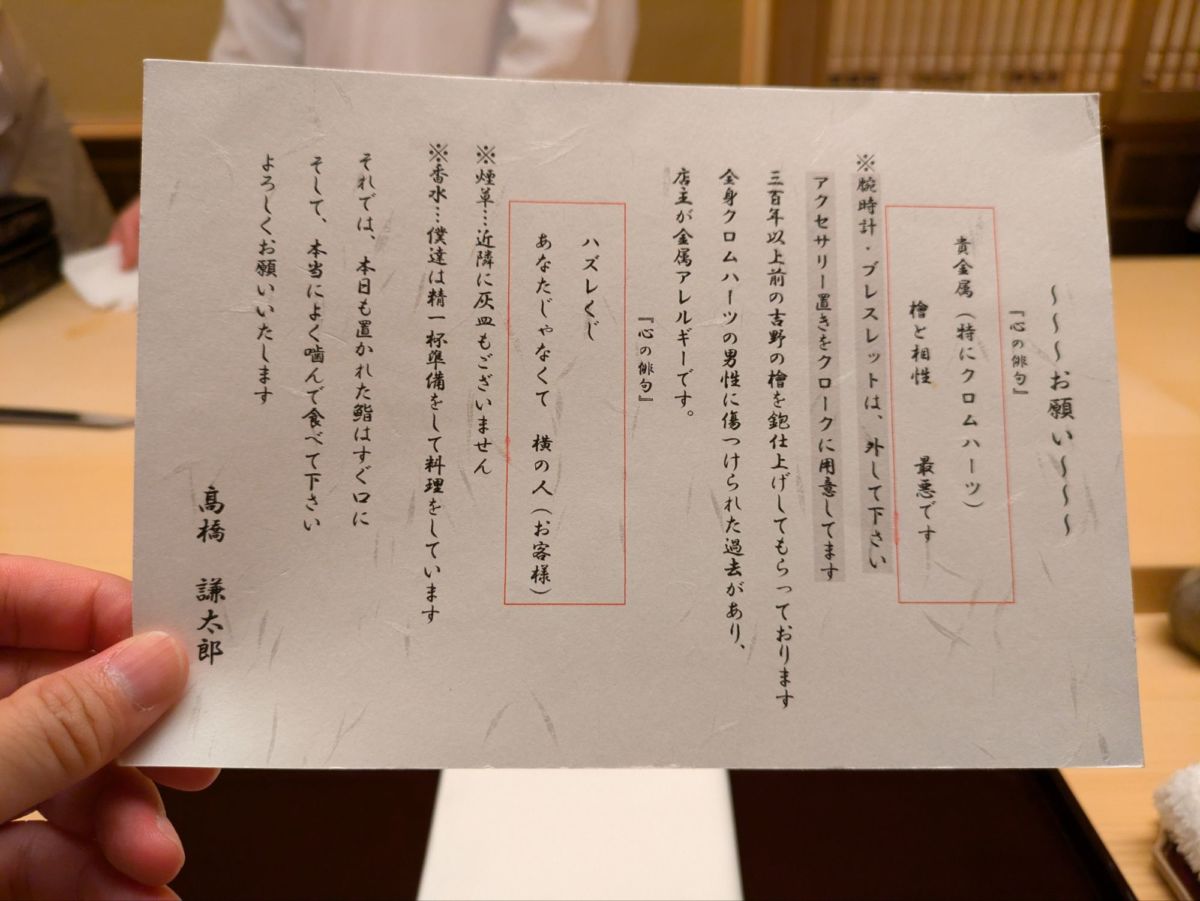 ～～～お願い～～～
『心の俳句』
貴金属（特にクロムハーツ）
檜と相性　最悪です
※腕時計・ブレスレットは、外して下さい
アクセサリー置きをクロークに用意してます
三百年以上前の吉野の檜を鉋仕上げしてもらっております
全身クロムハーツの男性に傷つけられた過去があり、
店主が金属アレルギーです。
『心の俳句』
ハズレくじ
あなたじゃなくて　横の人（お客様）
※煙草…近隣に灰皿もございません
※香水…僕達は精一杯準備をして料理をしています
それでは、本日も置かれた鮨はすぐ口に
そして、本当によく噛んで食べて下さい
よろしくお願いいたします
髙橋　謙太郎